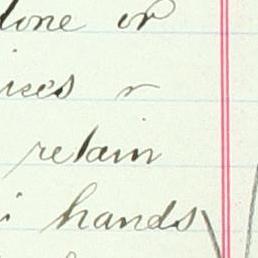 done or
ises &
retain
i hands